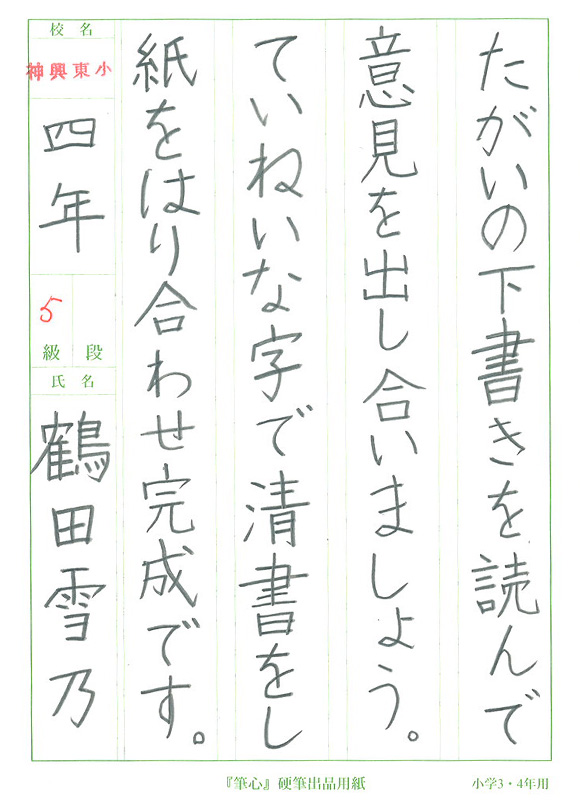 たがいの下書きを読んで
意見を出し合いましょう。
ていねいな字で清書をし
紙をはり合わせ完成です。
校名
神興東小
四年
5
級段
氏名
鶴田雪乃
『筆心』硬筆出品用紙
小学3・4年用